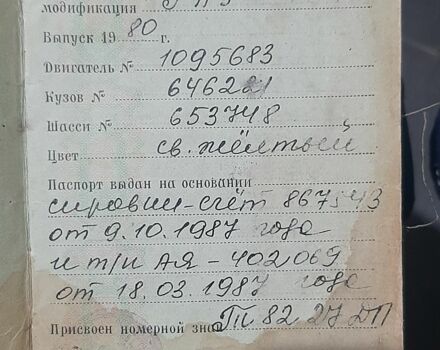 модификация
Выпуск 1980 г.
Двигатель № 1095683
Кузов № 646221
Шасси № 653748
Цвет св. жёлтый
Паспорт выдан на основании
справки-счёт 867543
от 9.10.1987 года
и т/п АЯ-402069
от 18.03.1987 года
Присвоен номерной знак 82 27 ДП